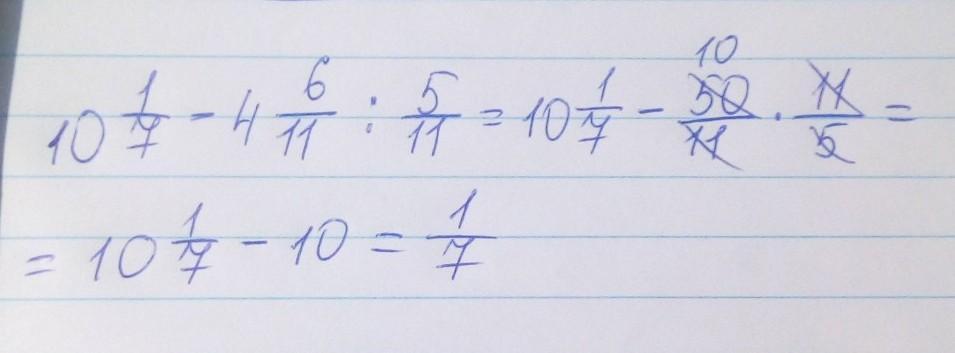 10 1/7 - 4 6/11 : 5/11 = 10 1/7 - 50/11 · 11/5 =
10
= 10 1/7 - 10 = 1/7